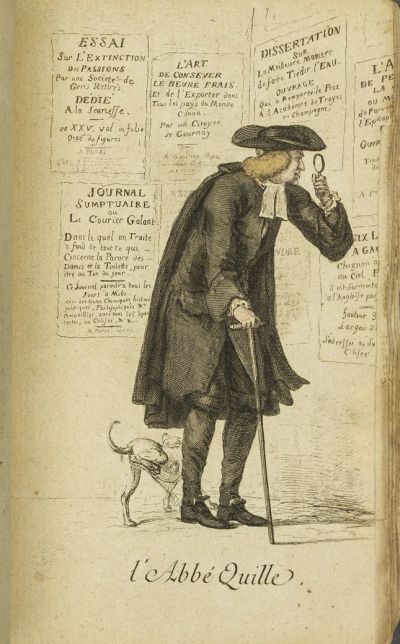 ESSAI
Sur L'EXTINCTION
Des PASSIONS
Par une Societé de
Gens Retirés
DEDIÉ
A la Jeunesse.
en XXV. vol in folio
Orné de figures
A PARIS
L'ART
DE CONSEVER
LE BEURE FRAIS
Et de l'Exporter dans
Tous les pays du Monde
Connu.
Par un Citoyen
de Gournay
A Gournay chez
DISSERTATION
Sur
La Meilleure Maniere
de faire Tiedir l'EAU.
OUVRAGE
Qui a Remporté le Prix
A L'Academie de Troyes
en Champagne
L'A
DE PE
LA
ou M
de Par
l'Epitap
JOURNAL
SUMPTUAIRE
ou
Le Courier Galant
Dans le quel on Traite
a fond de tout ce qui
Concerne la Parure des
Dames et la Toilette, pour
être au Ton du jour.
Ce Journal paroitra tous les
Jours a Midi
A Paris
NDRE
SIX L
A GAG
Chignon
au Ciel
il est surmonté
a l'Angloise pa
hauteur 3
Largeur 2
Sadresser au du
Colisée
l'Abbé Quille.